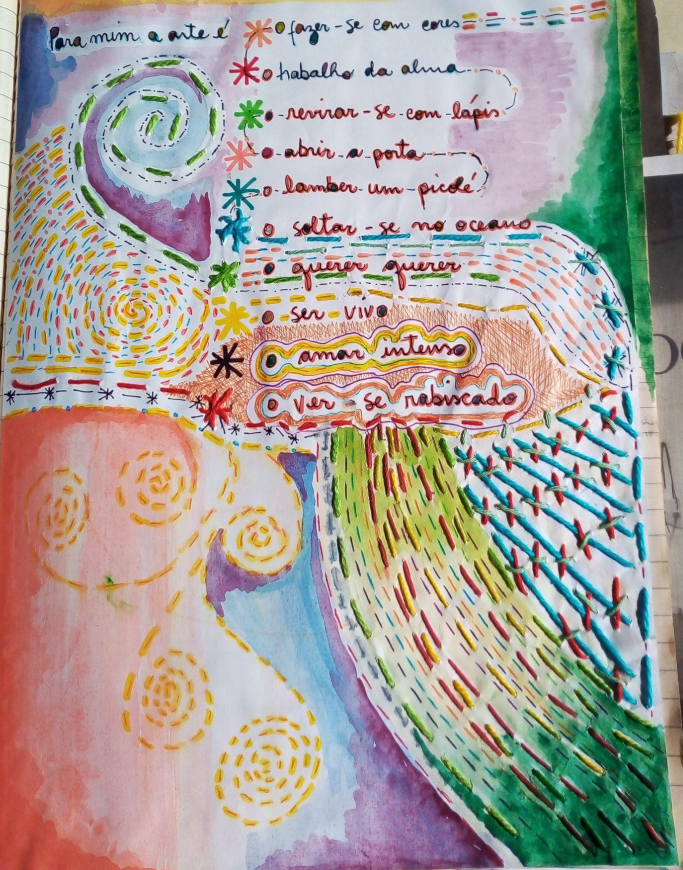 Para mim a arte é
o fazer-se com cores
o trabalho da alma
o revirar-se com lápis
o abrir a porta
o lamber um picolé
o soltar-se no oceano
o querer querer
o ser vivo
o amar intenso
o ver-se rabiscado